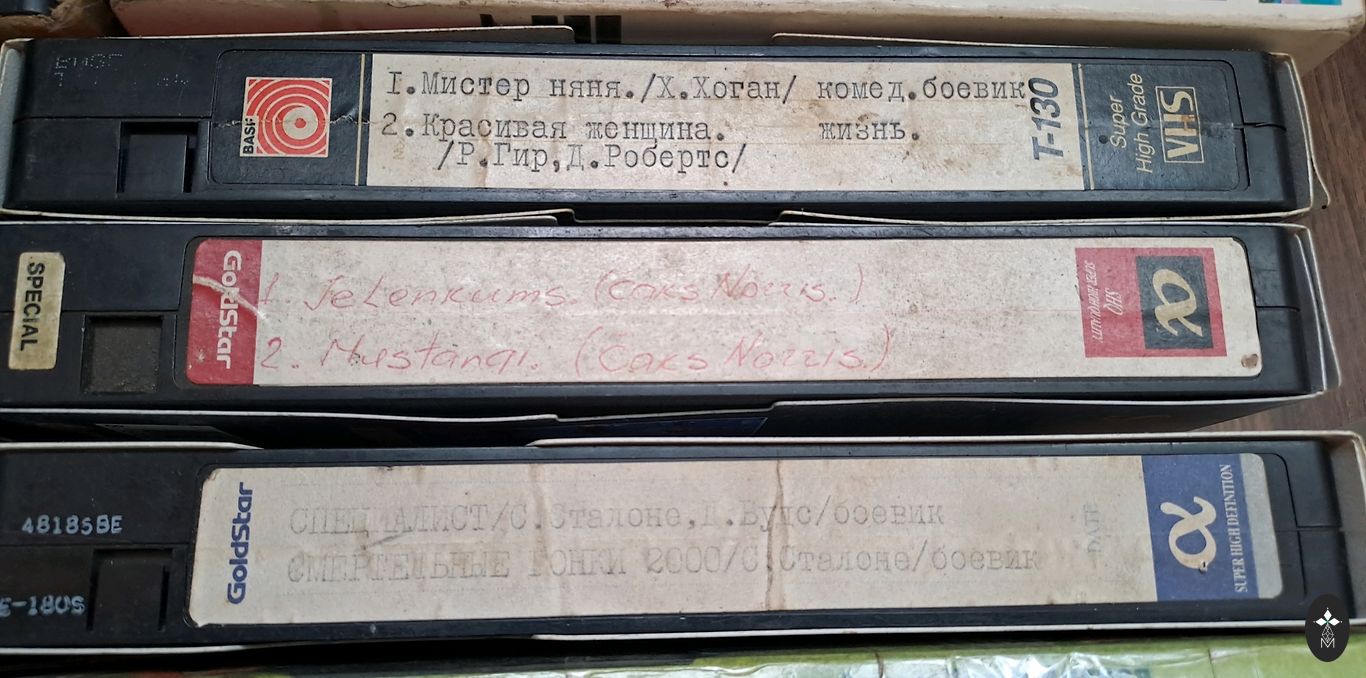 BASF
1.Мистер няня./Х.Хоган/ комед.боевик
2.Красивая женщина. жизнь.
/Р.Гир,Д.Робертс/
T-130
Super
High Grade
VHS
SPECIAL
GoldStar
1. Jelenkums. (Čaks Norris.)
2. Mustangi. (Čaks Norris.)
48185BE
E-180S
GoldStar
СПЕЦИАЛИСТ/С.Сталоне,Д.Вудс/боевик
СМЕРТЕЛЬНЫЕ ГОНКИ 2000/С.Сталоне/боевик
DATE
α
SUPER HIGH DEFINITION
M